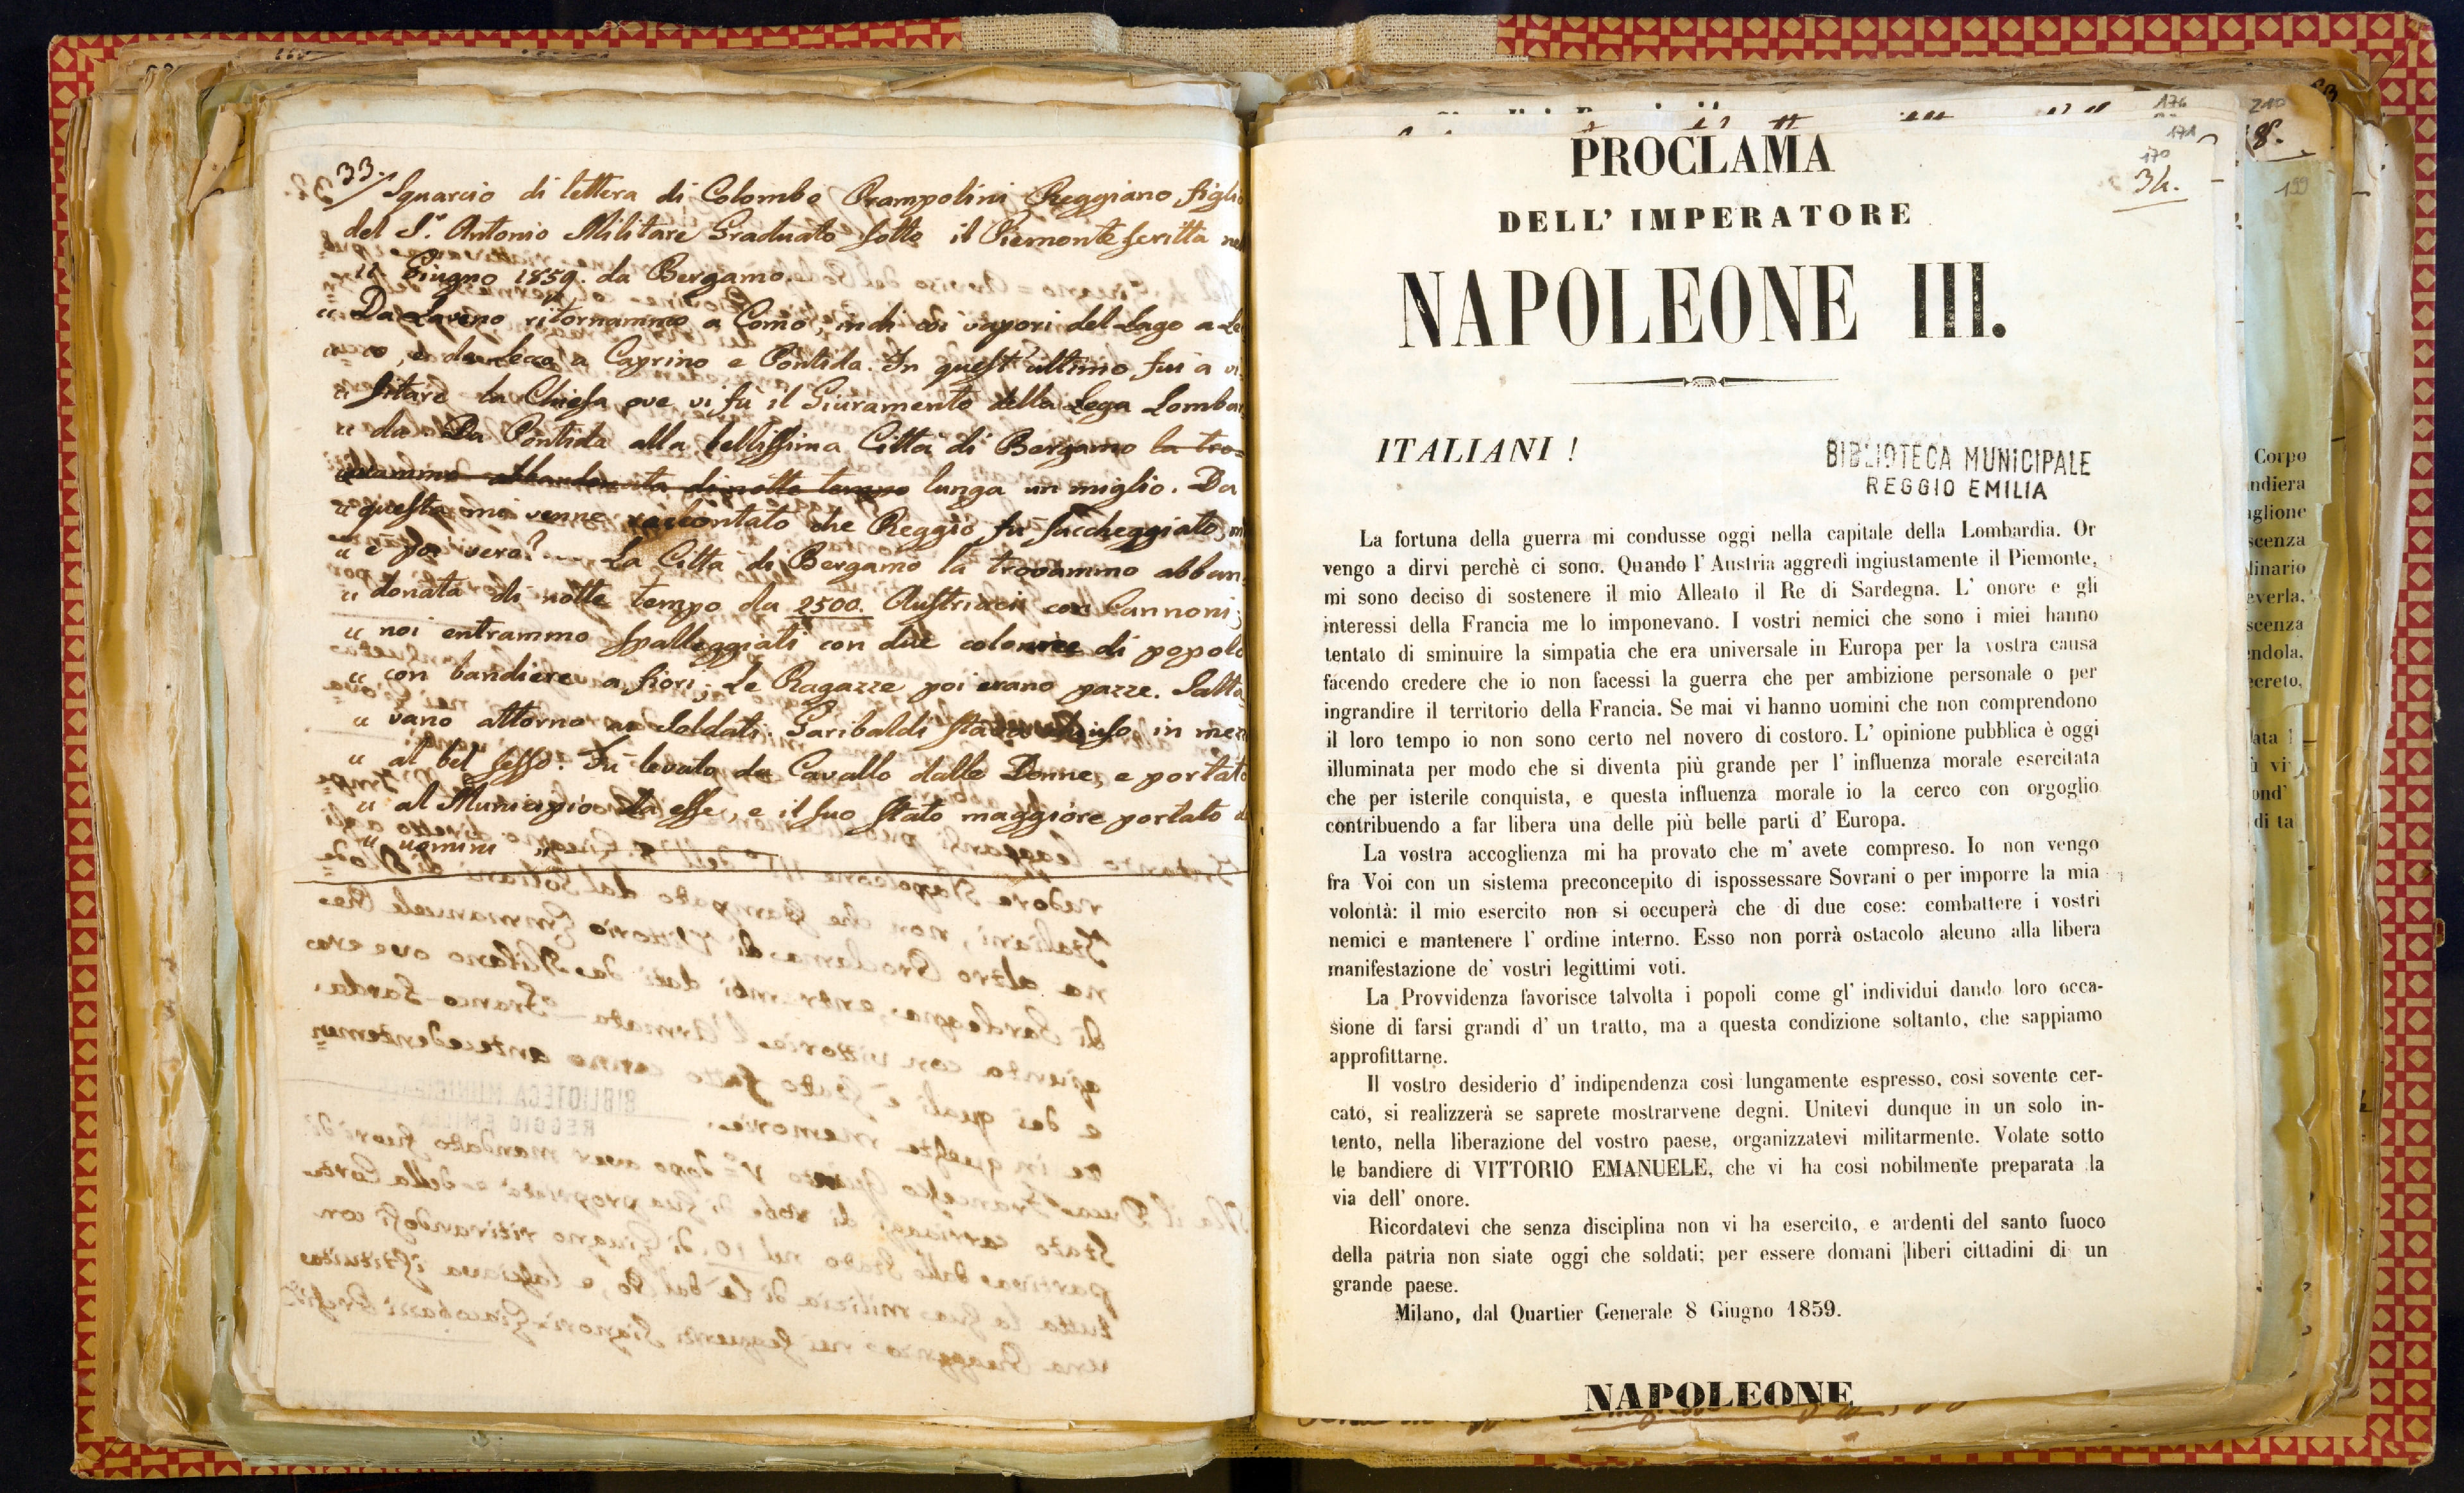 33.
Squarcio di lettera di Colombo Prampolini Reggiano figlio
del S.r Antonio Militare Graduato sotto il Piemonte scritta
11. Giugno 1859. da Bergamo.
" Da Laveno ritornammo a Como, indi coi vapori del Lago a Le
" co, e da Lecco a Caprino e Pontida. In quest' ultimo fui a vi
" sitare la Chiesa ove vi fù il Giuramento della Lega Lombar
" da Da Pontida alla bellissima Città di Bergamo la tro=
vammo abbandonata di notte tempo lunga un miglio. Da
" questa mi venne raccontato che Reggio fu saccheggiato,
" è poi vero? La Città di Bergamo la trovammo abban
" donata di notte tempo da 2500. Austriaci con Cannoni;
" noi entrammo spalleggiati con due colonne di popolo
" con bandiere a fiori; Le Ragazze poi erano pazze. Salta
" vano attorno ai Soldati. Garibaldi stava chiuso in mez
" al bel sesso. Fù levato da Cavallo dalle Donne, e portato
" al Municipio da esse, e il suo Stato maggiore portato d
" uomini "
176
171
170
34.
PROCLAMA
DELL' IMPERATORE
NAPOLEONE III.
ITALIANI !
BIBLIOTECA MUNICIPALE
REGGIO EMILIA
La fortuna della guerra mi condusse oggi nella capitale della Lombardia. Or
vengo a dirvi perchè ci sono. Quando l' Austria aggredì ingiustamente il Piemonte,
mi sono deciso di sostenere il mio Alleato il Re di Sardegna. L' onore e gli
interessi della Francia me lo imponevano. I vostri nemici che sono i miei hanno
tentato di sminuire la simpatia che era universale in Europa per la vostra causa
facendo credere che io non facessi la guerra che per ambizione personale o per
ingrandire il territorio della Francia. Se mai vi hanno uomini che non comprendono
il loro tempo io non sono certo nel novero di costoro. L' opinione pubblica è oggi
illuminata per modo che si diventa più grande per l' influenza morale esercitata
che per isterile conquista, e questa influenza morale io la cerco con orgoglio
contribuendo a far libera una delle più belle parti d' Europa.
La vostra accoglienza mi ha provato che m' avete compreso. Io non vengo
fra Voi con un sistema preconcepito di ispossessare Sovrani o per imporre la mia
volontà: il mio esercito non si occuperà che di due cose: combattere i vostri
nemici e mantenere l' ordine interno. Esso non porrà ostacolo alcuno alla libera
manifestazione de' vostri legittimi voti.
La Provvidenza favorisce talvolta i popoli come gl' individui dando loro occa-
sione di farsi grandi d' un tratto, ma a questa condizione soltanto, che sappiamo
approfittarne.
Il vostro desiderio d' indipendenza così lungamente espresso, così sovente cer-
cato, si realizzerà se saprete mostrarvene degni. Unitevi dunque in un solo in-
tento, nella liberazione del vostro paese, organizzatevi militarmente. Volate sotto
le bandiere di VITTORIO EMANUELE, che vi ha così nobilmente preparata la
via dell' onore.
Ricordatevi che senza disciplina non vi ha esercito, e ardenti del santo fuoco
della patria non siate oggi che soldati; per essere domani liberi cittadini di un
grande paese.
Milano, dal Quartier Generale 8 Giugno 1859.
NAPOLEONE
210
8.
199
Corpo
ndiera
aglione
scenza
linario
everla,
scenza
endola,
ecreto,
ond'
di ta